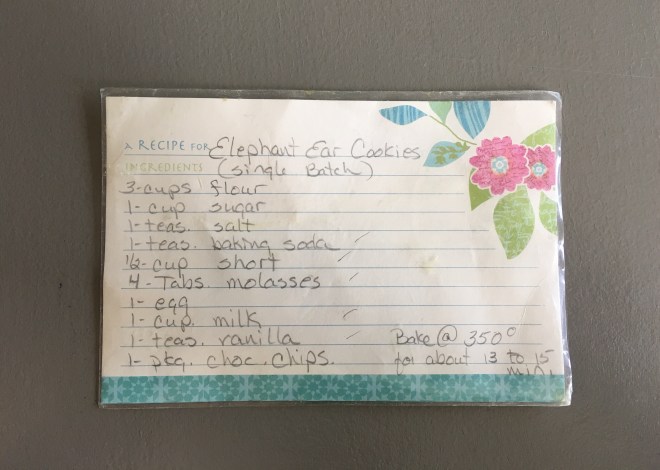 A RECIPE FOR Elephant Ear Cookies
INGREDIENTS (single Batch)
3-cups flour
1- cup sugar
1-teas. salt
1-teas. baking soda
1/2-cup short
4-Tabs. molasses
1- egg
1- cup. milk
1- teas. vanilla
1- pkg. choc. chips.
Bake @ 350°
for about 13 to 15
min.